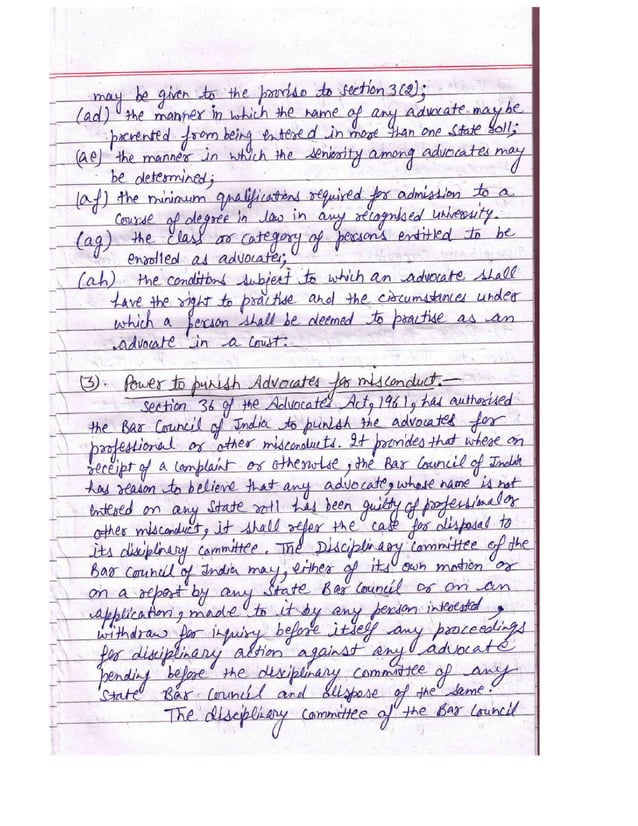 may be given to the proviso to section 3(2);
(ad) the manner in which the name of any advocate may be
prevented from being entered in more than one state roll;
(ae) the manner in which the seniority among advocates may
be determined;
(af) the minimum qualifications required for admission to a
Course of degree in law in any recognised university.
(ag) the class or category of persons entitled to be
enrolled as advocates;
(ah) the conditions subject to which an advocate shall
have the right to practise and the circumstances under
which a person shall be deemed to practise as an
advocate in a court.
(3). Power to punish Advocates for misconduct.—
Section 36 of the Advocates Act, 1961, has authorised
the Bar Council of India to punish the advocates for
professional or other misconducts. It provides that where on
receipt of a complaint or otherwise, the Bar Council of India
has reason to believe that any advocate, whose name is not
entered on any State roll has been guilty of professional or
other misconduct, it shall refer the case for disposal to
its disciplinary committee. The Disciplinary committee of the
Bar Council of India may, either of its own motion or
on a report by any State Bar Council or on an
application, made to it by any person interested,
withdraw for inquiry before itself any proceedings
for disciplinary action against any advocate
pending before the disciplinary committee of any
State Bar Council and dispose of the same.
The disciplinary committee of the Bar Council